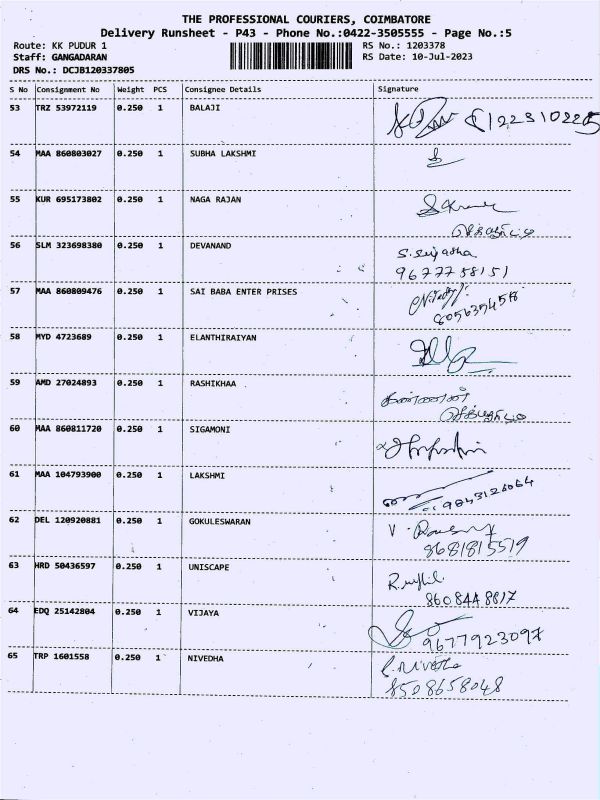 THE PROFESSIONAL COURIERS, COIMBATORE
Delivery Runsheet - P43 - Phone No.:0422-3505555 - Page No.:5
Route: KK PUDUR 1 RS No.: 1203378
Staff: GANGADARAN RS Date: 10-Jul-2023
DRS No.: DCJB120337805
S No Consignment No Weight PCS Consignee Details Signature
53 TRZ 53972119 0.250 1 BALAJI
54 MAA 860803027 0.250 1 SUBHA LAKSHMI
55 KUR 695173802 0.250 1 NAGA RAJAN
செக்யூரிட்டி
56 SLM 323698380 0.250 1 DEVANAND
9677758151
57 MAA 860809476 0.250 1 SAI BABA ENTER PRISES
8056354558
58 MYD 4723689 0.250 1 ELANTHIRAIYAN
59 AMD 27024893 0.250 1 RASHIKHAA
செக்யூரிட்டி
60 MAA 860811720 0.250 1 SIGAMONI
61 MAA 104793900 0.250 1 LAKSHMI
9843126064
62 DEL 120920881 0.250 1 GOKULESWARAN
8681815519
63 HRD 50436597 0.250 1 UNISCAPE
8608448817
64 EDQ 25142804 0.250 1 VIJAYA
9677923097
65 TRP 1601558 0.250 1 NIVEDHA
P.Nivedha
8508658048